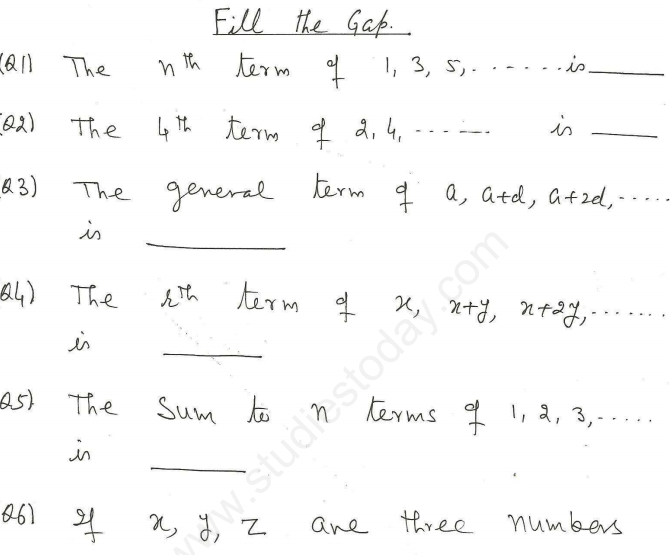 Fill the Gap.
(Q1) The nth term of 1, 3, 5,....... is ______
(Q2) The 4th term of 2, 4, ------- is ______
(Q3) The general term of a, a+d, a+2d,.....
is ______
Q4) The rth term of x, x+y, x+2y,.......
is ______
Q5) The Sum to n terms of 1, 2, 3,......
is ______
Q6) If x, y, z are three numbers
www.studiestoday.com